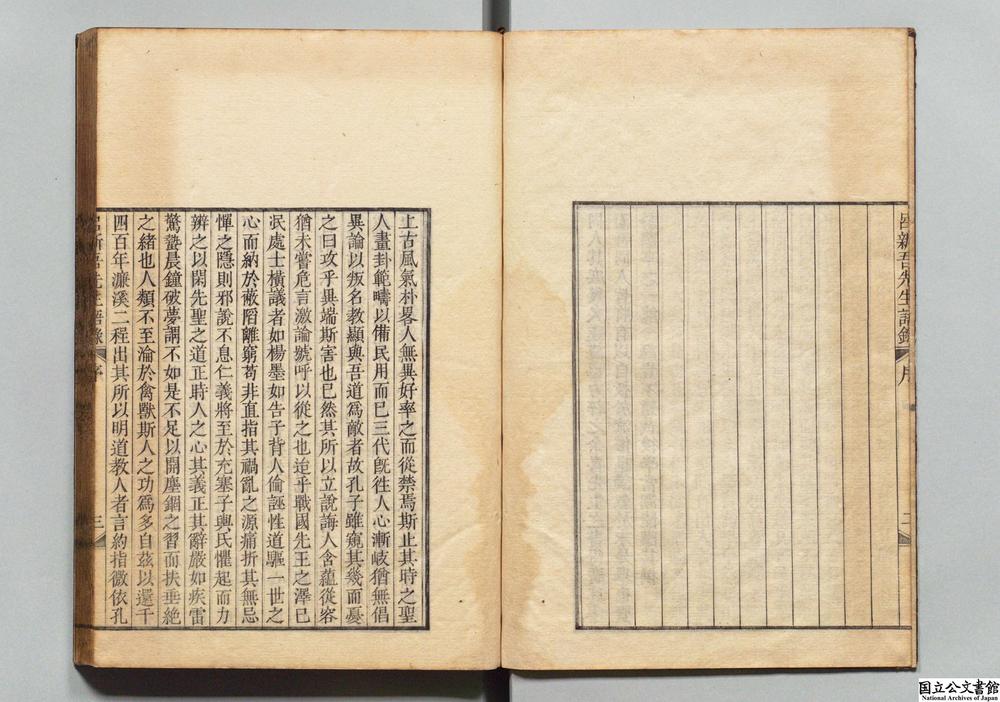 呂新吾先生語錄
序
二
上古風氣朴畧人無異好率之而從禁焉斯止其時之聖
人畫卦範疇以備民用而已三代旣徃人心漸岐猶無倡
異論以叛名教顯與吾道爲敵者故孔子雖窺其幾而憂
之曰攻乎異端斯害也已然其所以立說誨人含蘊從容
猶未嘗危言激論號呼以從之也迨乎戰國先王之澤已
泯處士橫議者如楊墨如告子背人倫誣性道驅一世之
心而納於蔽陷離窮苟非直指其禍亂之源痛折其無忌
憚之隱則邪說不息仁義將至於充塞子輿氏懼起而力
辨之以閑先聖之道正時人之心其義正其辭嚴如疾雷
驚蟄晨鐘破夢謂不如是不足以開塵錮之習而扶垂絕
之緒也人類不至淪於禽獸斯人之功爲多自茲以還千
四百年濂溪二程出其所以明道教人者言約指微依孔
呂新吾先生語錄
序
三
国立公文書館
National Archives of Japan